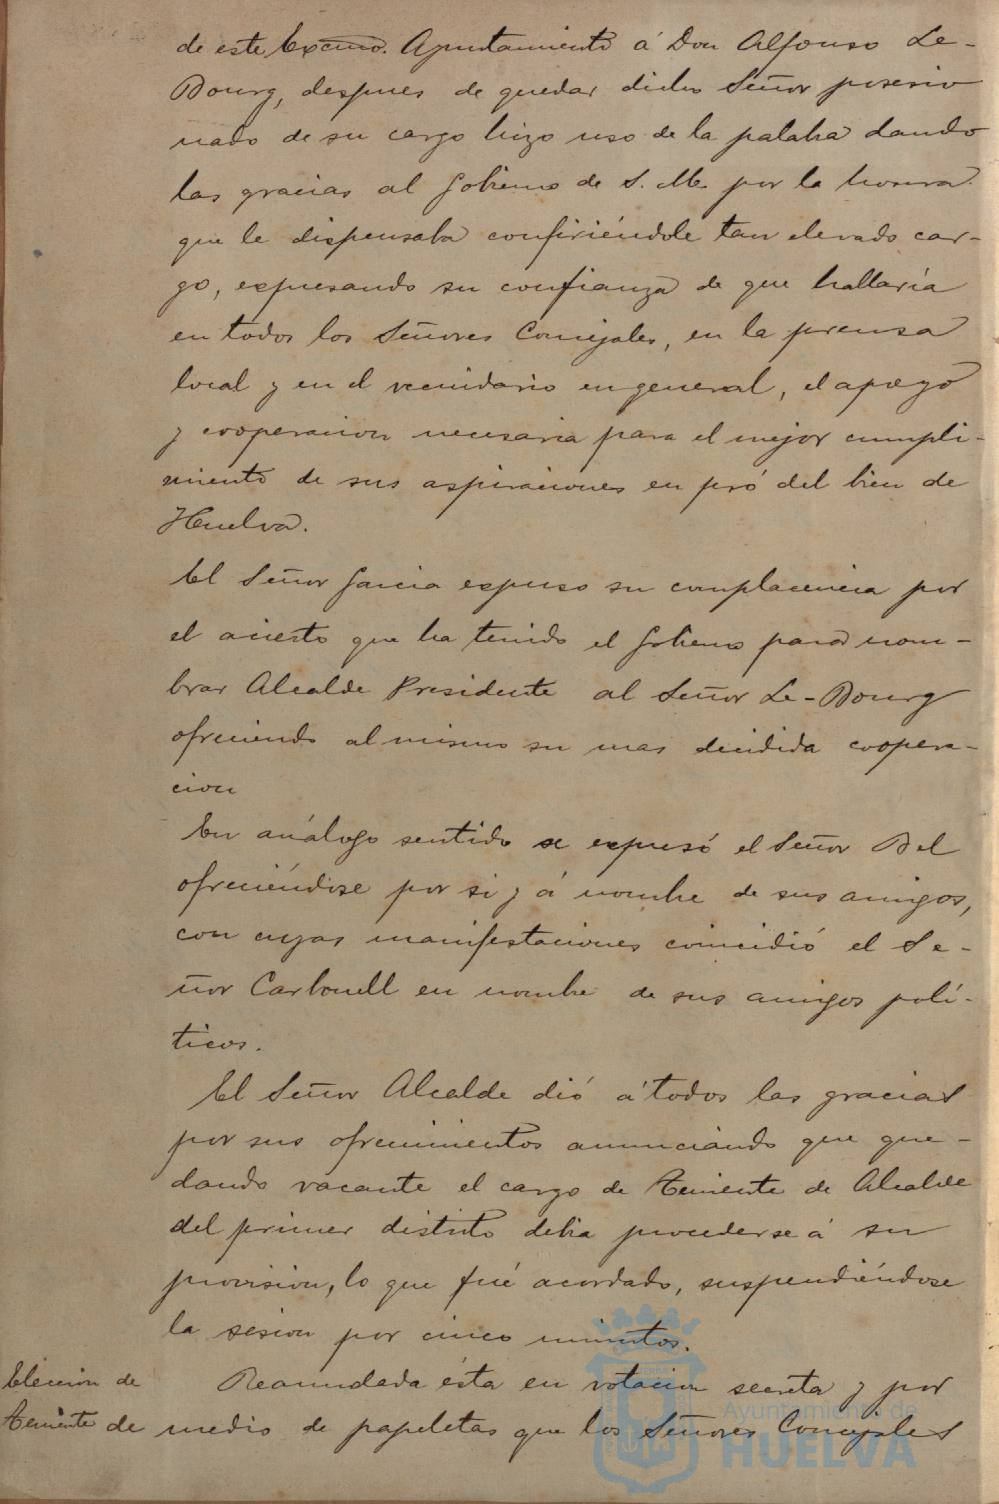 de este Excmo. Ayuntamiento á Don Alfonso Le-
Bourg, despues de quedar dicho Señor posesio
nado de su cargo hizo uso de la palabra dando
las gracias al Gobierno de S. M. por la honra
que le dispensaba confiriéndole tan elevado car-
go, expresando su confianza de que hallaría
en todos los Señores Concejales, en la prensa
local y en el vecindario en general, el apoyo
y cooperacion necesaria para el mejor cumpli-
miento de sus aspiraciones en pró del bien de
Huelva.
El Señor Garcia expuso su complacencia por
el acierto que ha tenido el Gobierno para nom-
brar Alcalde Presidente al Señor Le-Bourg
ofreciendo al mismo su mas decidida coopera-
cion
En análogo sentido se expresó el Señor Bel
ofreciéndose por si y á nombre de sus amigos,
con cuyas manifestaciones coincidió el Se-
ñor Carbonell en nombre de sus amigos polí-
ticos.
El Señor Alcalde dió á todos las gracias
por sus ofrecimientos anunciando que que-
dando vacante el cargo de Teniente de Alcalde
del primer distrito debia procederse á su
provision, lo que fué acordado, suspendiéndose
la sesion por cinco minutos.
Eleccion de
Teniente de
Reanudada ésta en votacion secreta y por
medio de papeletas que los Señores Concejales
Ayuntamiento de
HUELVA